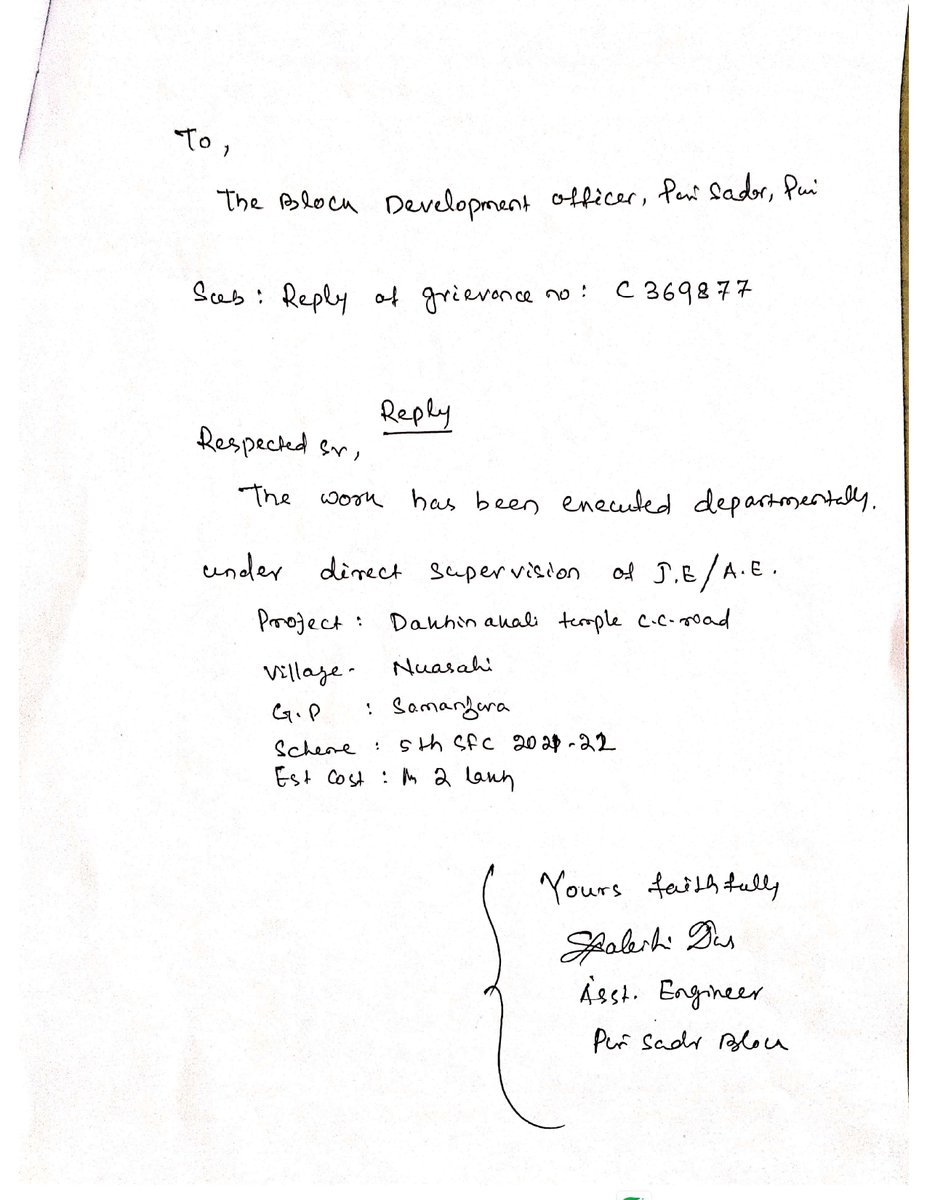 To,
The Block Development officer, Puri Sadar, Puri
Sub: Reply of grievance no: C369877
Reply
Respected sir,
The work has been executed departmentally.
under direct supervision of J.E/A.E.
Project: Dakhinakali temple c.c.road
Village- Nuasahi
G.P : Samanjara
Scheme : 5th SFC 2021-22
Est Cost : 2 lakh
Yours faithfully
Das
Asst. Engineer
Puri Sadar Block